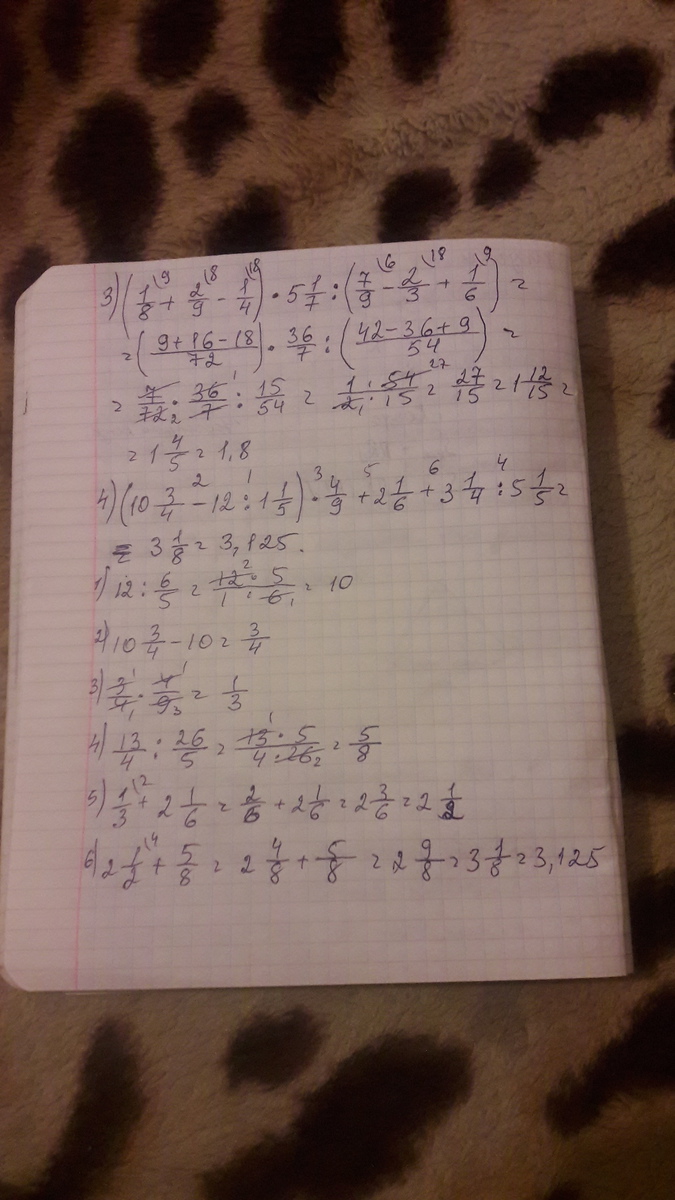 3) (1/8 \9 + 2/9 \8 - 1/4 \18) · 5 1/7 : (7/9 \6 - 2/3 \18 + 1/6 \9) =
= (9+16-18)/72 · 36/7 : (42-36+9)/54 =
= 7/72 2 · 36/7 1 : 15/54 = 1/2 1 · 54/15 27 = 27/15 = 1 12/15 =
= 1 4/5 = 1,8
4) (10 3/4 -2 12 :1 1 1/5) ·3 4/9 +5 2 1/6 +6 3 1/4 :4 5 1/5 =
= 3 1/8 = 3,125.
1) 12 : 6/5 = (12 2 · 5)/(1 · 6 1) = 10
2) 10 3/4 - 10 = 3/4
3) 3 1/4 1 · 4 1/9 3 = 1/3
4) 13/4 : 26/5 = (13 1 · 5)/(4 · 26 2) = 5/8
5) 1/3 \2 + 2 1/6 = 2/6 + 2 1/6 = 2 3/6 = 2 1/2
6) 2 1/2 \4 + 5/8 = 2 4/8 + 5/8 = 2 9/8 = 3 1/8 = 3,125